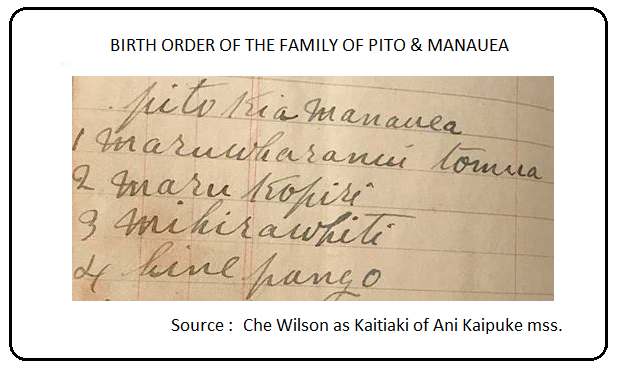 BIRTH ORDER OF THE FAMILY OF PITO & MANAUEA
pito kia manauea
1 maruwharanui tomua
2 maru kopiri
3 mihirawhiti
4 hine pango
Source : Che Wilson as Kaitiaki of Ani Kaipuke mss.